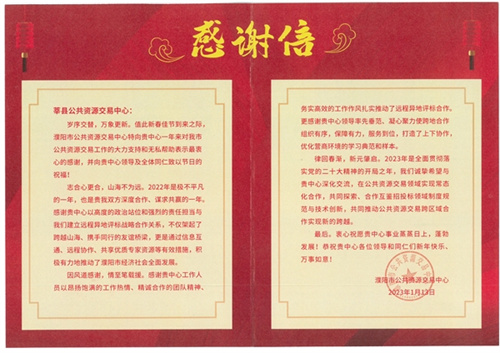 感谢信
莘县公共资源交易中心：
岁序交替，万象更新。值此新春佳节到来之际，
濮阳市公共资源交易中心特向贵中心一年来对我市
公共资源交易工作的大力支持和无私帮助表示最衷
心的感谢，并向贵中心领导及全体同仁致以节日的
祝福！
志合心更合，山海不为远。2022年是极不平凡
的一年，也是贵我双方深度合作、谋求共赢的一年。
感谢贵中心以高度的政治站位和强烈的责任担当与
我们建立远程异地评标战略合作关系，不仅架起了
跨越山海、携手同行的友谊桥梁，更是通过信息互
通、远程协作、共享优质专家资源等有效措施，积
极有力地推动了濮阳市经济社会全面发展。
因风道感谢，情至笔载援。感谢贵中心工作人
员以昂扬饱满的工作热情、精诚合作的团队精神、
务实高效的工作作风扎实推动了远程异地评标合作。
更感谢贵中心领导率先垂范，凝心聚力使跨地合作
组织有序，保障有力，服务到位，打造了上下协作，
优化营商环境的学习典范和样本。
律回春渐，新元肇启。2023年是全面贯彻落
实党的二十大精神的开局之年，我们诚挚希望与
贵中心深化交流，在公共资源交易领域实现常态
化合作，共同探索、合作互鉴招投标领域制度规
范与技术创新，共同推动公共资源交易跨区域合
作实现新的跨越。
最后，衷心祝愿贵中心事业蒸蒸日上，蓬勃
发展！恭祝贵中心各位领导和同仁们新年快乐、
万事如意！
濮阳市公共资源交易中心
2023年1月13日